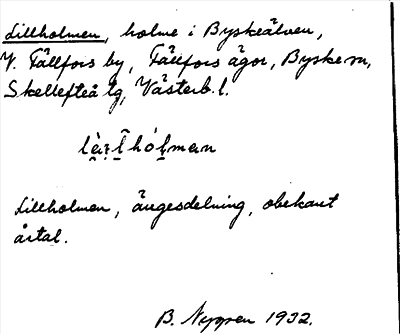 Lillholmen, holme i Byskeälven,
V. Fällfors by, Fällfors ägor, Byske sn,
Skellefteå tg, Västerb. l.
Lillholmen, ängesdelning, obekant
årtal.
B. Nygren 1932.